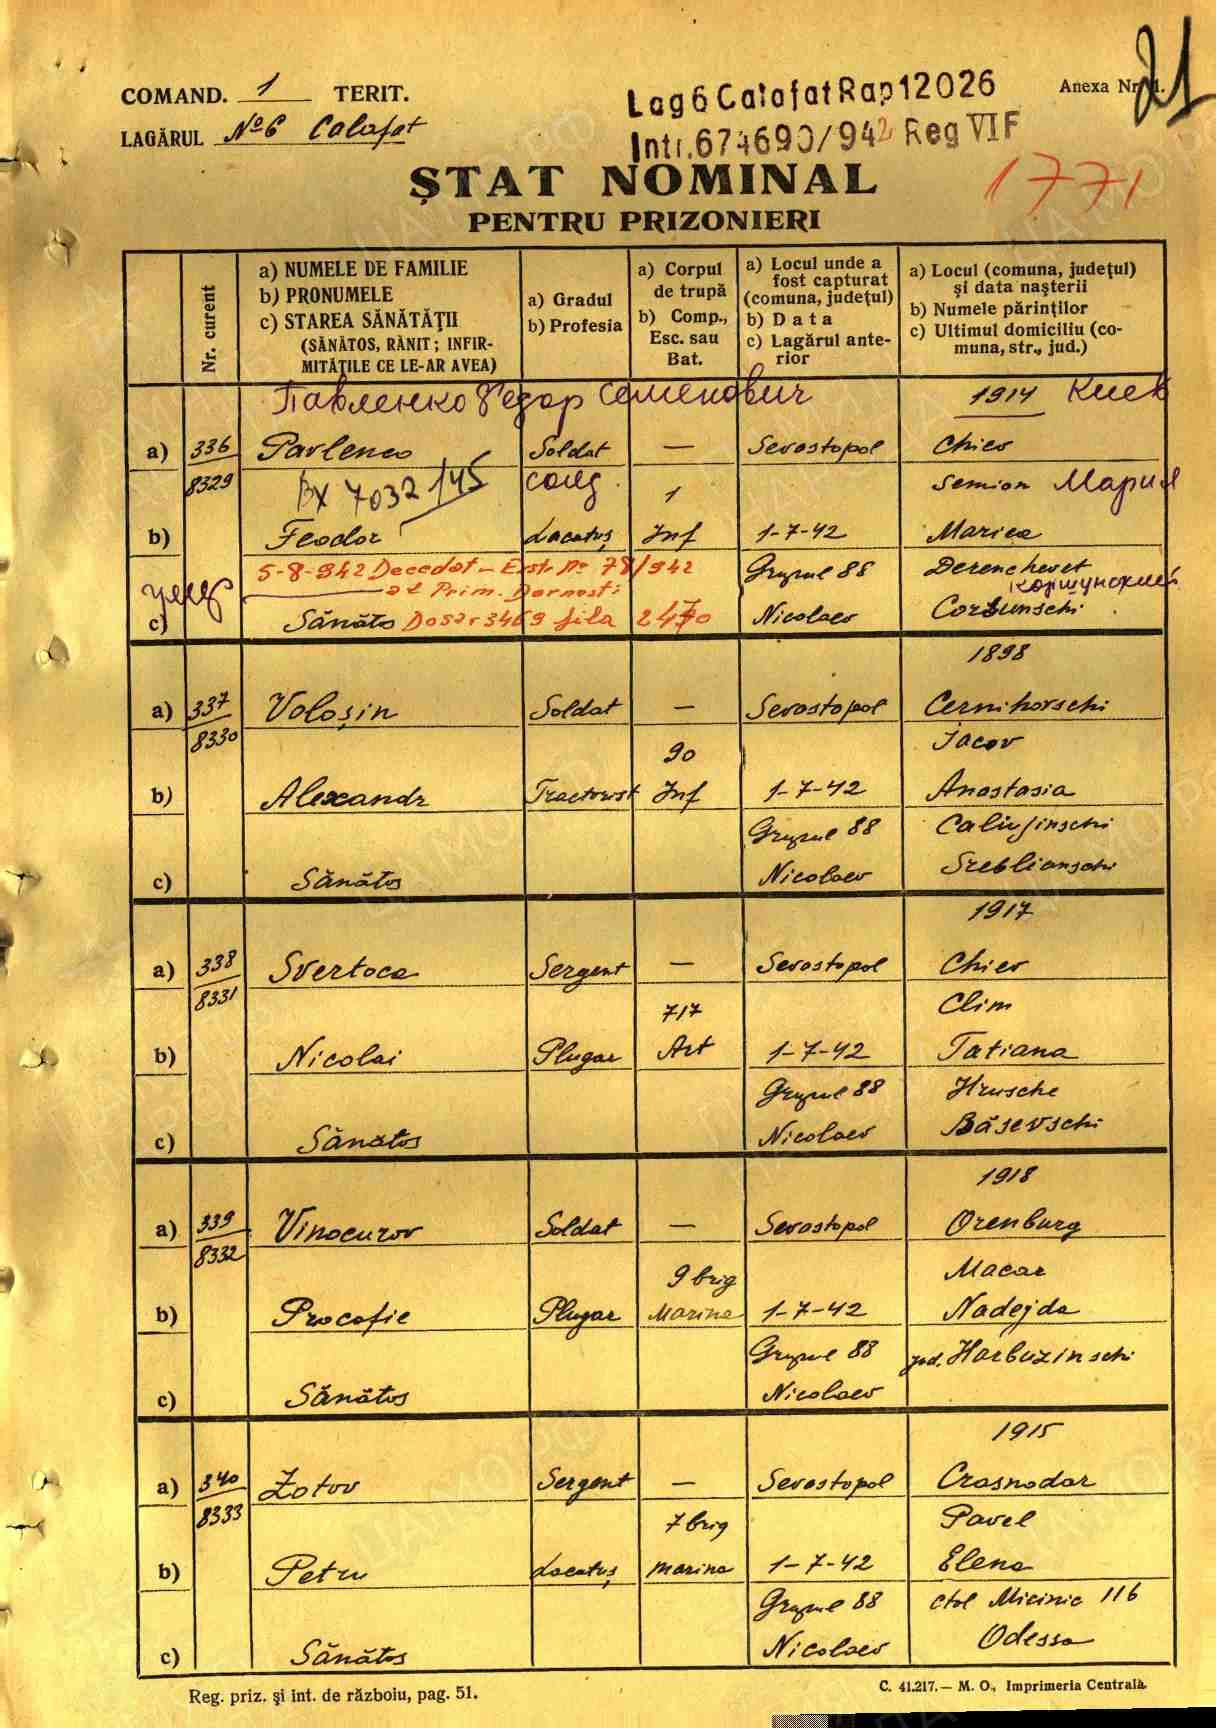 COMAND. 1 TERIT.
Anexa Nr. 1.
21
LAGĂRUL Nº 6 Calafat
Lag 6 Calafat Rap 12026
Intr. 674690/942 Reg VI F
1771
ȘTAT NOMINAL
PENTRU PRIZONIERI
Nr. curent
a) NUMELE DE FAMILIE
b) PRONUMELE
c) STAREA SĂNĂTĂȚII
(SĂNĂTOS, RĂNIT; INFIR-
MITĂȚILE CE LE-AR AVEA)
a) Gradul
b) Profesia
a) Corpul
de trupă
b) Comp.,
Esc. sau
Bat.
a) Locul unde a
fost capturat
(comuna, județul)
b) Data
c) Lagărul ante-
rior
a) Locul (comuna, județul)
și data nașterii
b) Numele părinților
c) Ultimul domiciliu (co-
muna, str., jud.)
Павленко Федор Семенович 1914 Киев
a) 336 Pavlenco Soldat — Sevastopol Chiev
8329 Вх 7032 145 солд. 1 Semion Мария
b) Feodor Lacatuș Inf 1-7-42 Marica
5-8-942 Decedat - Extr. No 78/942 Grupul 88 Derenchevet
at Prim. Dornesti Коршунский
c) Sănătos Dosar 3469 fila 2470 Nicolaev Corsunschi
1898
a) 337 Voloșin Soldat — Sevastopol Cernihovschi
8330 90 Iacov
b) Alexandr Tractorist Inf 1-7-42 Anastasia
Grupul 88 Caliujinschi
c) Sănătos Nicolaev Sreblianschi
1917
a) 338 Svertoca Sergent — Sevastopol Chiev
8331 717 Clim
b) Nicolai Plugar Art 1-7-42 Tatiana
Grupul 88 Hrusche
c) Sănătos Nicolaev Băsevschi
1918
a) 339 Vinocurov Soldat — Sevastopol Orenburg
8332 9 brig Macar
b) Procofie Plugar Marina 1-7-42 Nadejda
Grupul 88 jud. Harbuzinschi
c) Sănătos Nicolaev
1915
a) 340 Zotov Sergent — Sevastopol Crasnodar
8333 7 brig Pavel
b) Petru Lacatuș marina 1-7-42 Elena
Grupul 88 ctol Micinic 116
c) Sănătos Nicolaev Odessa
Reg. priz. și int. de războiu, pag. 51.
C. 41.217.— M. O., Imprimeria Centrală.